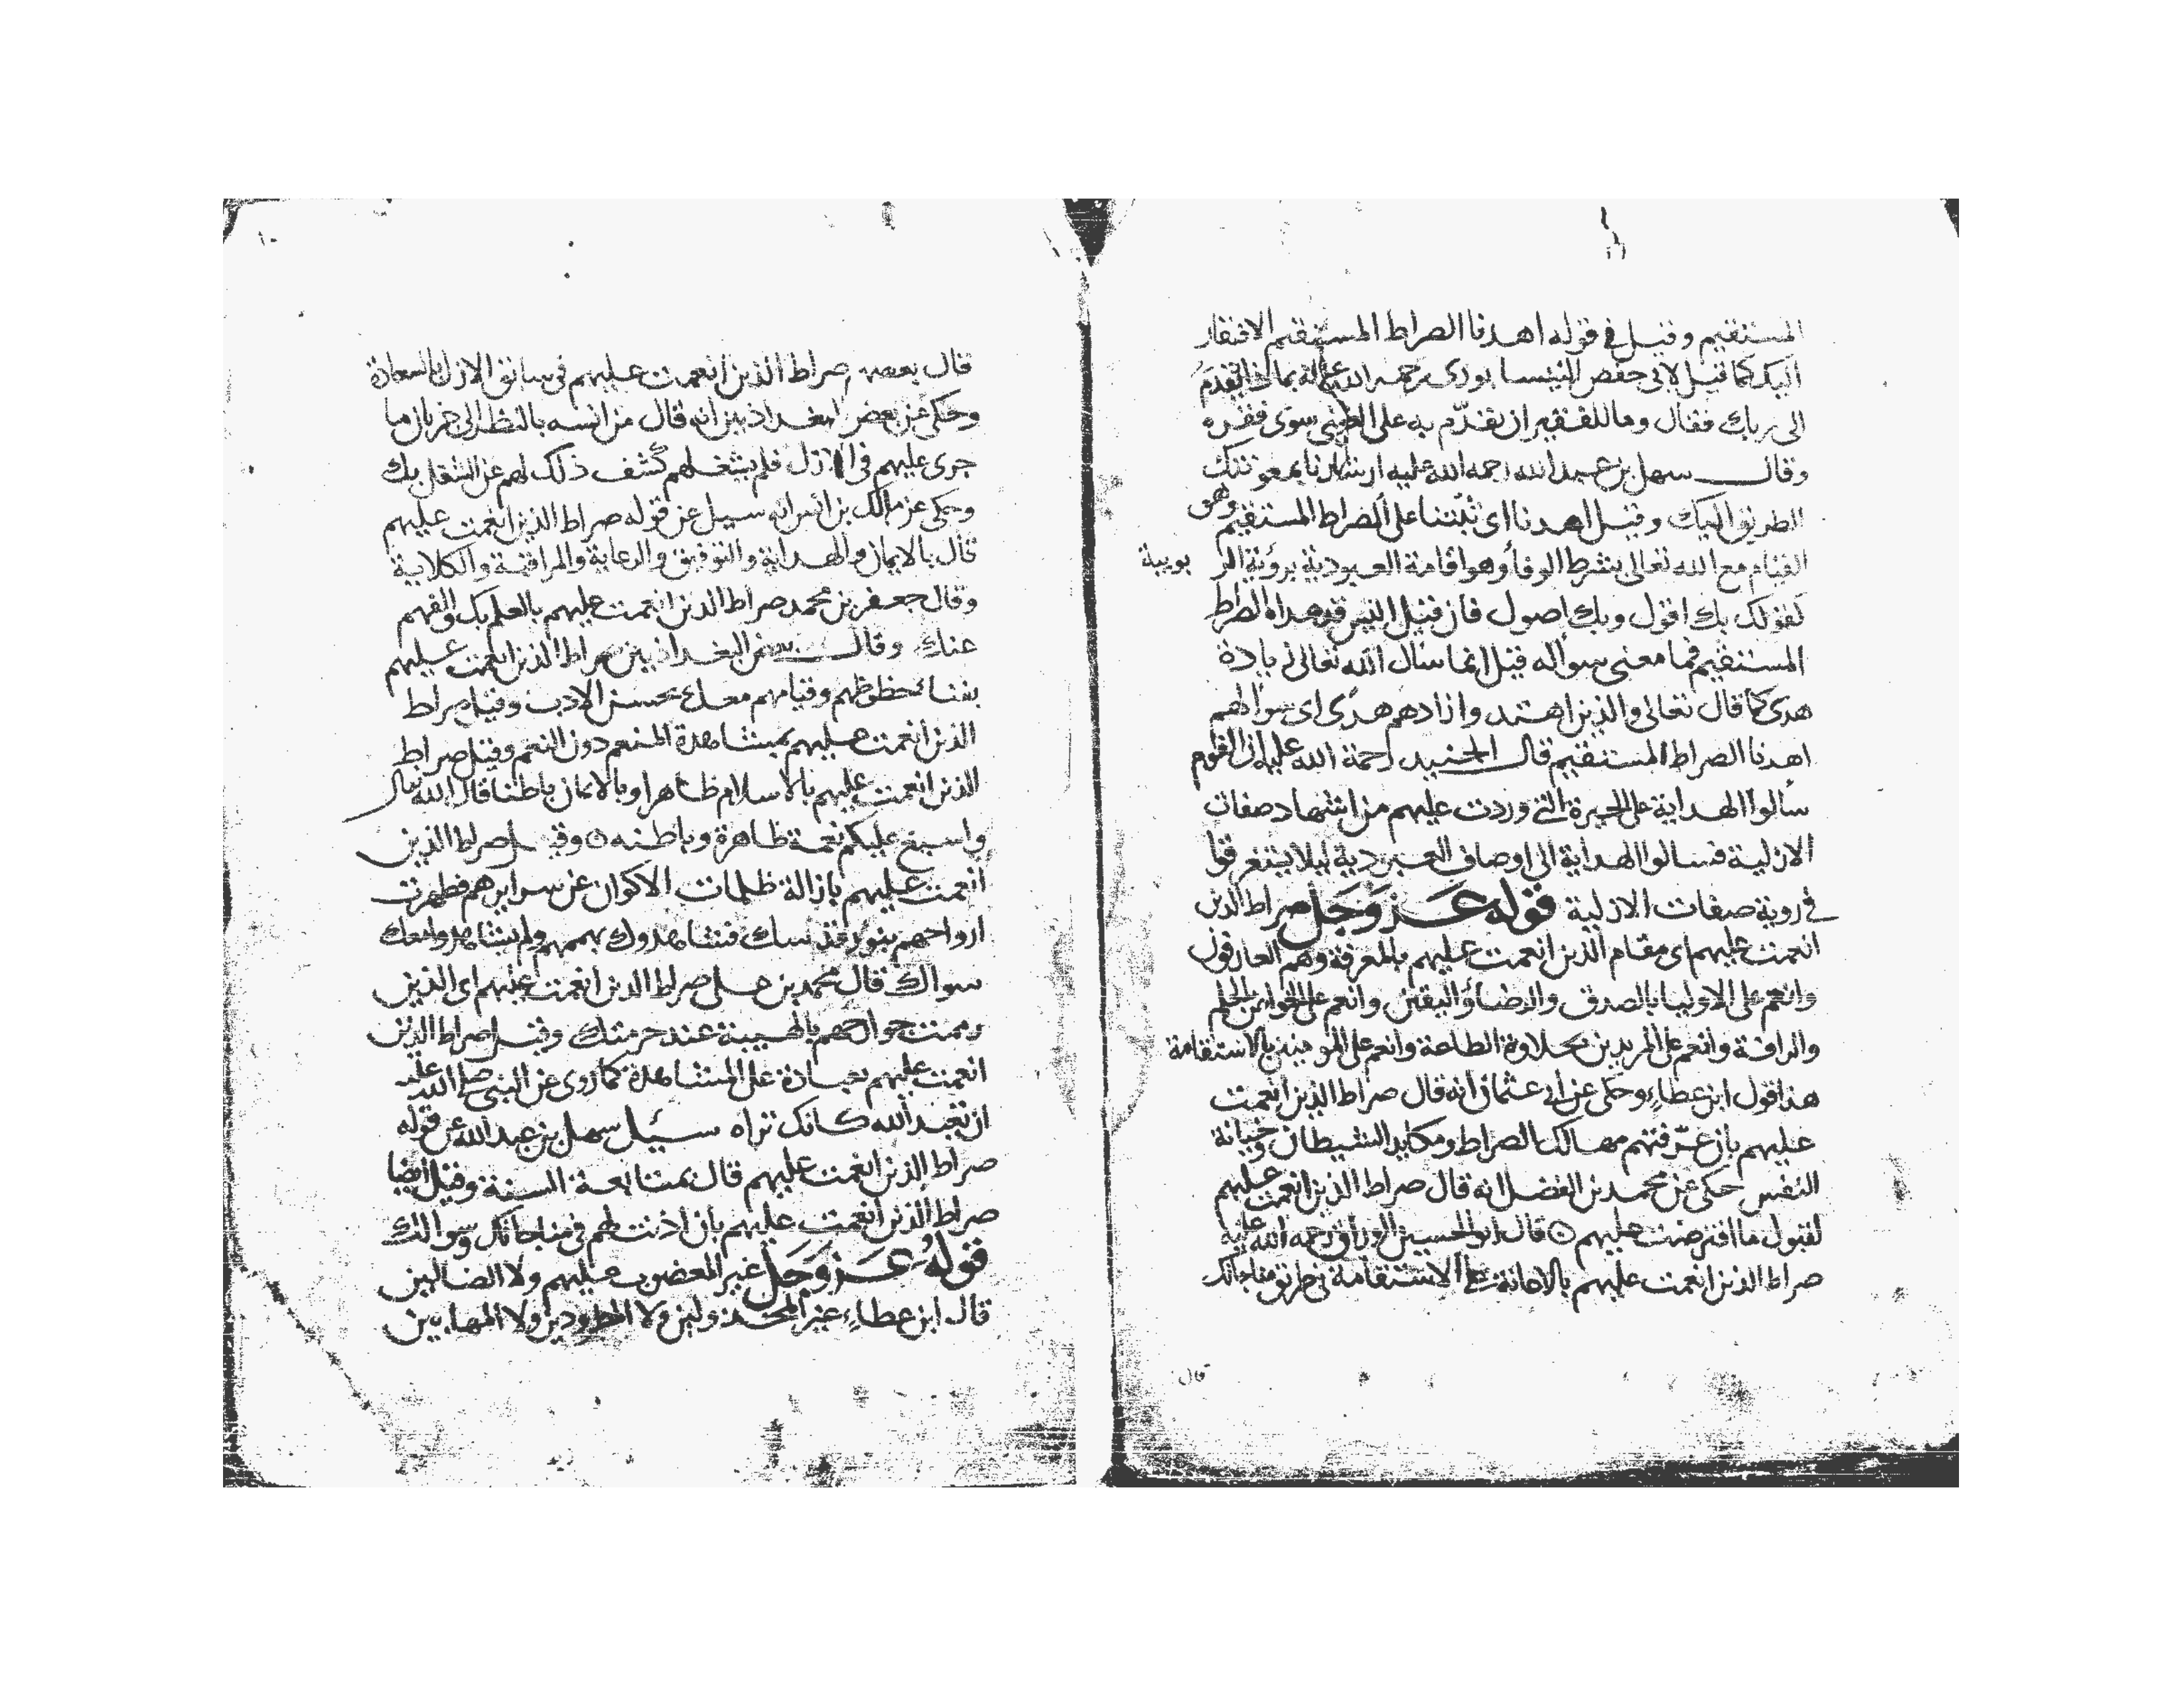 المستقيم وقيل في قوله اهدنا الصراط المستقيم الافتقار
اليك كما قيل لابي حفص النيسابوري رحمه الله عليه بماذا تقدم
الى ربك فقال وما للفقير ان تقدّم به على الغني سوى فقره
وقال سهل بن عبد الله رحمه الله عليه ارشدنا بمعونتك
الطريق اليك وقيل اهدنا اى ثبّتنا على الصراط المستقيم وهو
القيام مع الله تعالى بشرط الوفأ وهو اقامة العبودية برؤية الر بوبية
كقولك بك اقول وبك اصول فان قيل اليس قد هداه الصراط
المستقيم فما معنى سواله قيل انما سال الله تعالى زيادة
هدى كما قال تعالى والذين اهتدوا زادهم هدى اى سوالهم
اهدنا الصراط المستقيم قال الجنيد رحمة الله عليه ان القوم
سألوا الهداية على الحيرة التي وردت عليهم من اشهاد صفات
الازلية فسالوا الهداية الى اوصاف العبودية ليلا يستغرقوا
في روية صفات الازلية قوله عز وجل صراط الذين
انعمت عليهم اى مقام الذين انعمت عليهم بالمعرفة وهم العارفون
وانعم على الاوليا بالصدق والرضأ واليقين وانعم على الابرار بالحلم
والرافة وانعم على المريدين بحلاوة الطاعة وانعم على المومنين بالاستقامة
هذا قول ابن عطاء وحكى عن ابي عثمان انه قال صراط الذين انعمت
عليهم بان عرّفتهم مهالك الصراط ومكايد الشيطان وخيانة
النفس حكى عن محمد بن الفضل انه قال صراط الذين انعمت عليهم
لقبول ما افترضت عليهم قال ابو الحسين الوراق رحمه الله عليه
صراط الذين انعمت عليهم بالاعانة على الاستقامة في طريق مناجاتك
قال
قال بعضهم صراط الذين انعمت عليهم في سابق الازل بالسعادة
وحكى عن بعض البغداذيين انه قال من انسه بالنظر الى جريان ما
جرى عليهم في الازل فلم يشغلهم كشف ذلك لهم عن الشغل بك
وحكى عن مالك بن انس انه سيل عن قوله صراط الذين انعمت عليهم
قال بالايمان والهداية والتوفيق والرعاية والمراقبة والكلاية
وقال جعفر بن محمد صراط الذين انعمت عليهم بالعلم بك والفهم
عنك وقال بعض البغداذيين صراط الذين انعمت عليهم
بفناء حظوظهم وقيامهم معك بحسن الادب وقيل صراط
الذين انعمت عليهم بمشاهدة المنعم دون النعم وقيل صراط
الذين انعمت عليهم بالاسلام ظاهرا وبالايمان باطنا قال الله تعالى
واسبغ عليكم نعمة ظاهرة وباطنه وقيل صراط الذين
انعمت عليهم بازالة ظلمات الاكوان عن سرايرهم فطهرت
ارواحهم بنور قدسك فشاهدوك بهممهم ولم يشاهدوا معك
سواك قال محمد بن علي صراط الذين انعمت عليهم اى الذين
زممت جوارحهم بالهيبة عند خرمتك وقيل صراط الذين
انعمت عليهم بعبادة على المشاهدة كما روى عن النبي صلى الله عليه
ان تعبد الله كانك تراه سيئل سهل بن عبد الله عن قوله
صراط الذين انعمت عليهم قال بمتابعة السنة وقيل ايضا
صراط الذين انعمت عليهم بان اذنت لهم في مناجاتك وسوالك
قوله عز وجل غير المغضوب عليهم ولا الضالين
قال ابن عطاء غير المخذولين ولا المطرودين ولا المهانين